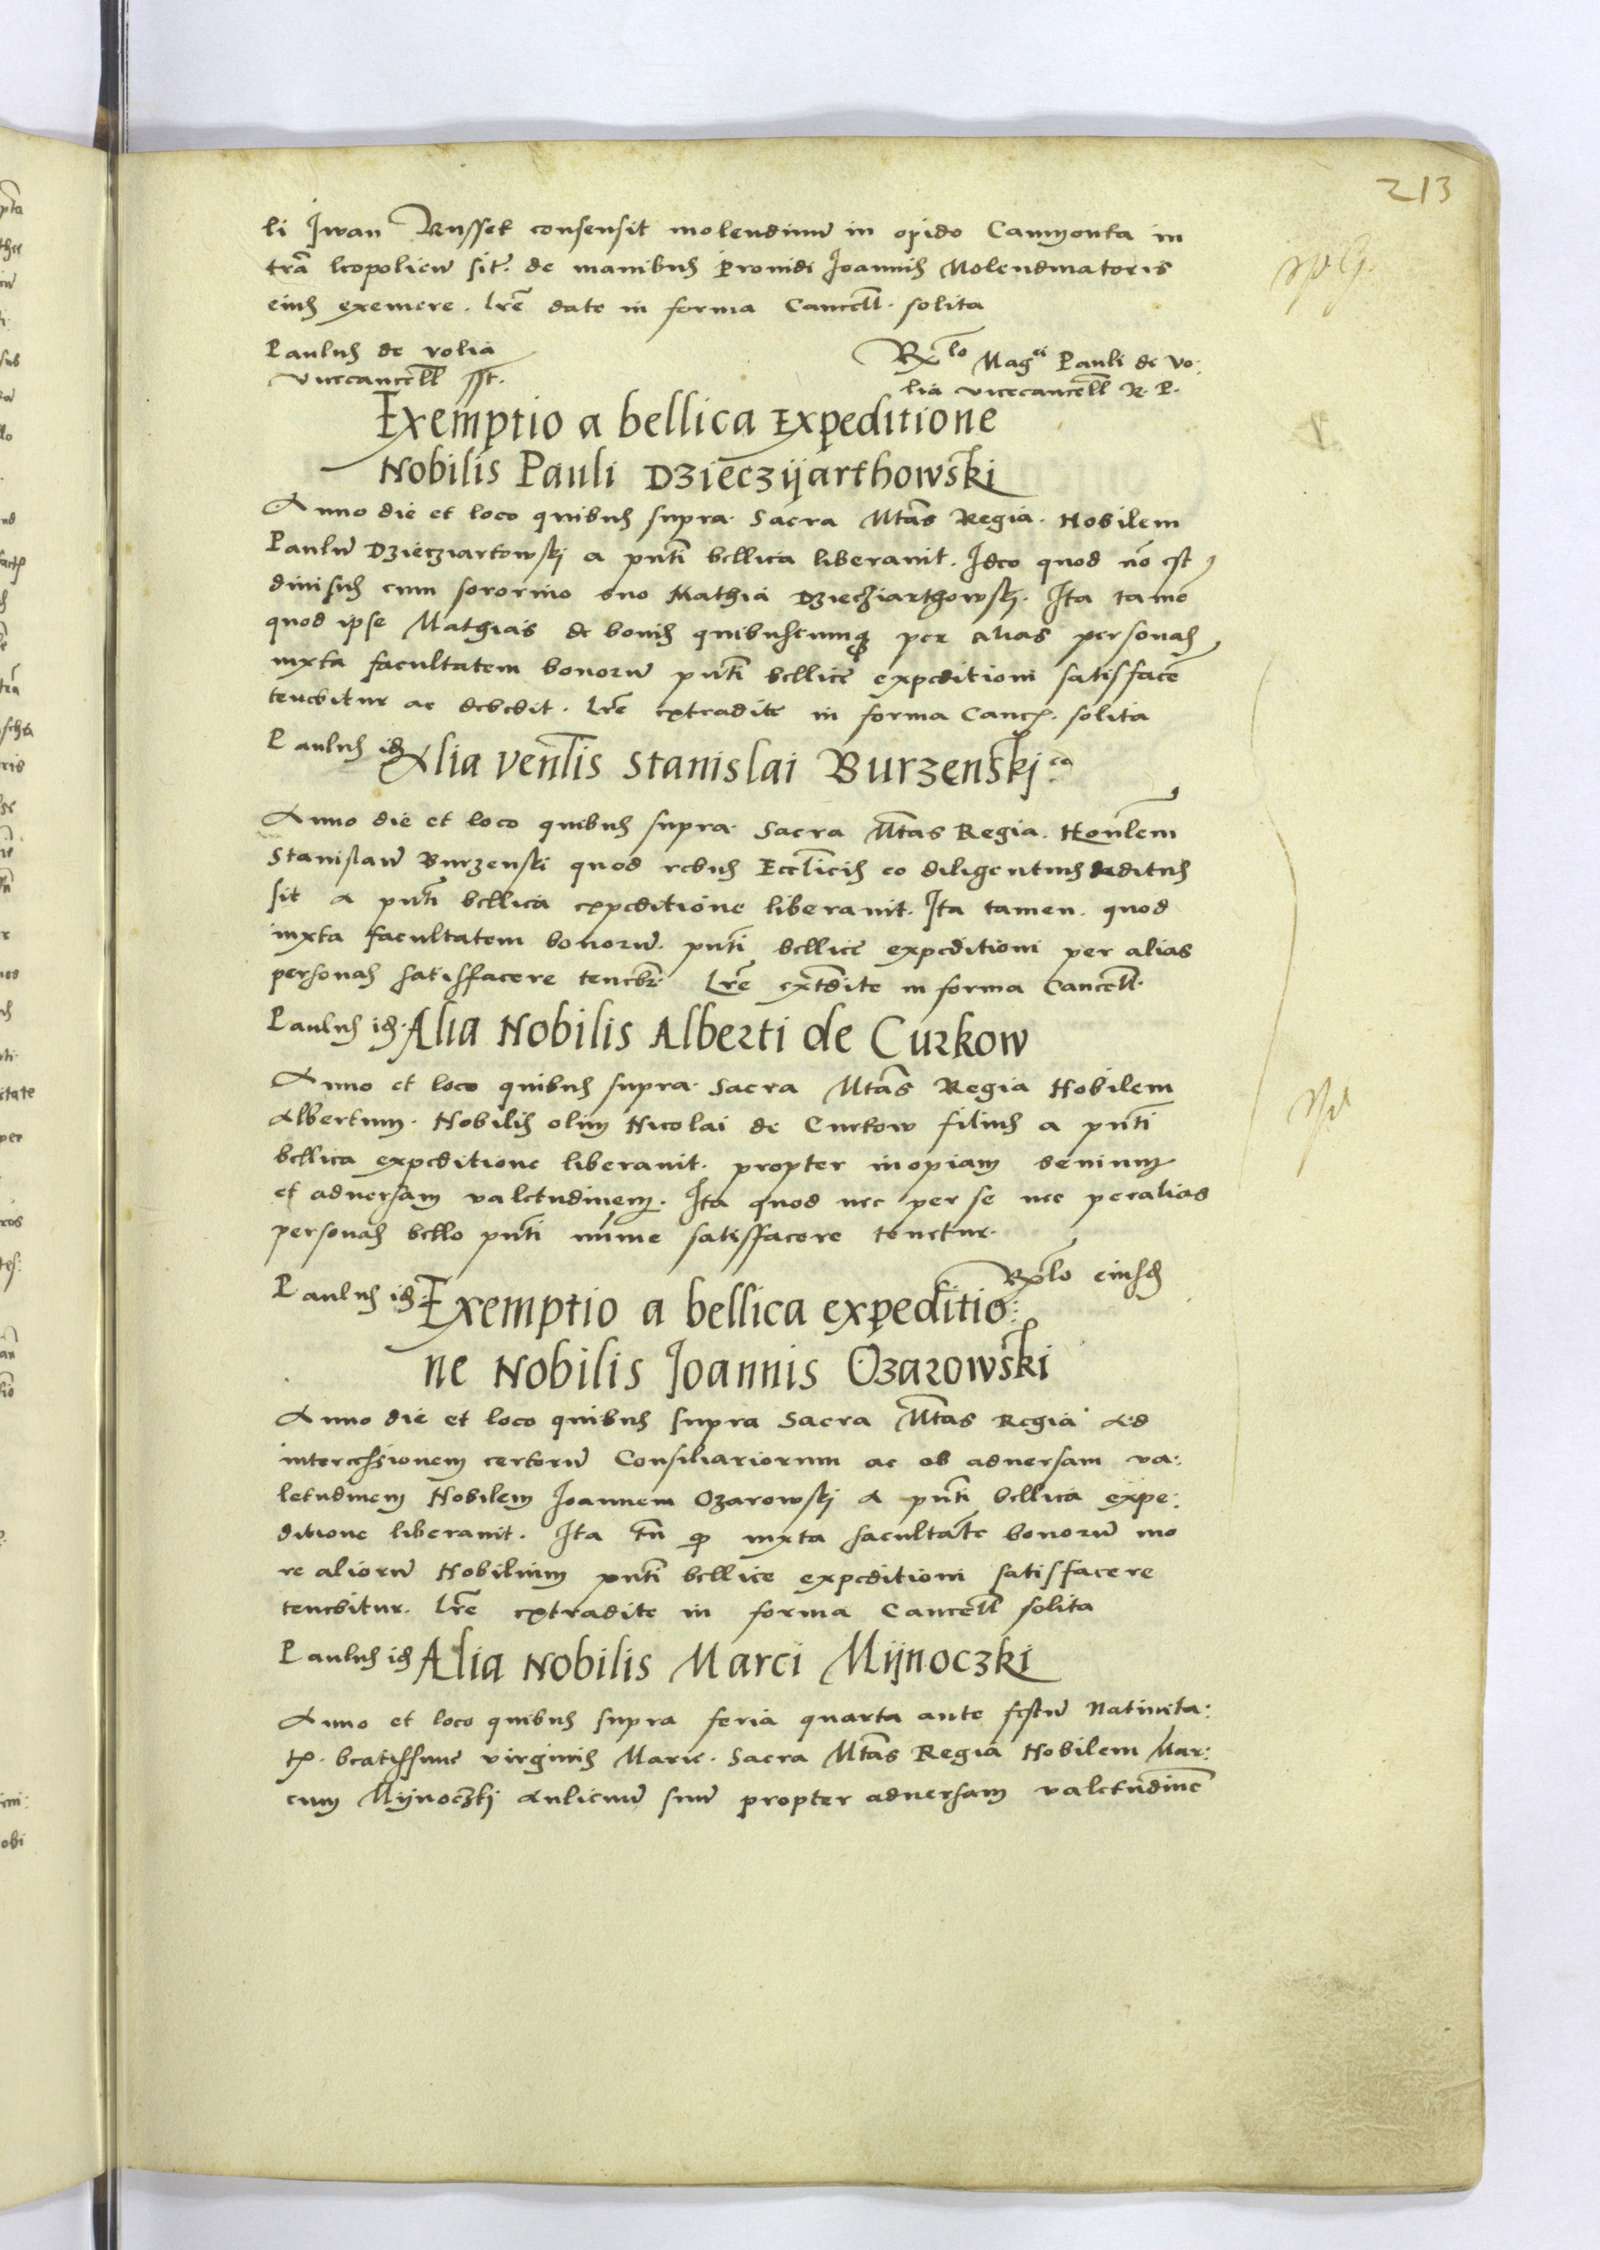 213
li Iwan Russek consensit molendinũ in opido Camyonka in
trã leopolieñ sit̃. de manibus Providi Joannis Molendinatoris
eius exemere. Lrẽ date in forma Cancell. solita
Paulus de volia
vicecancell sst.
Rlo Magci Pauli de Vo:
lia vicecancell R. P.
Exemptio a bellica Expeditione
Nobilis Pauli Dzieczijarthowski
Anno die et loco quibus supra. Sacra Mtãs Regia. Nobilem
Paulũ Dziecziartowskj a pñti bellica liberavit. Ideo quod nõ est
divisus cum sororino suo Mathia Dziecziarthowskj. Ita tamẽ
quod ipse Mathias de bonis quibuscumq per alias personas
iuxta facultatem bonorũ pñti bellicẽ expeditioni satisfacẽ
tenebitur ac debebit. Lrẽ extradite in forma Canc. solita
Paulus id
Alia Venlis Stanislai Burzenskj
Anno die et loco quibus supra. Sacra Mtas Regia. Honlem
Stanislaũ Burzenski quod rebus Eccliicis eo diligentius deditus
sit a pñti bellica expeditione liberavit. Ita tamen. quod
iuxta facultatem bonorũ. pñti bellicẽ expeditioni per alias
personas satisfacere teneb̃r. Lrẽ extdite in forma Cancell.
Paulus id.
Alia Nobilis Alberti de Curkow
Anno et loco quibus supra. Sacra Mtãs Regia Nobilem
Albertum. Nobilis olim Nicolai de Curkow filius a pñti
bellica expeditione liberavit. propter inopiam senium
et adversam valetudinem. Ita quod nec per se nec per alias
personas bello pñti mĩme satisfacere tenetur.
Rlo eiusd
Paulus id.
Exemptio a bellica expeditio:
ne Nobilis Joannis Ozarowski
Anno die et loco quibus supra Sacra Mtas Regia Ad
intercessionem certorũ Consiliariorum ac ob adversam va:
letudinem Nobilem Joannem Ozarowskj a pñti bellica expe:
ditione liberavit. Ita tñ q iuxta facultatẽ bonorũ mo
re aliorũ Nobilium pñti bellice expeditioni satisfacere
tenebitur. Lrẽ extradite in forma Cancell solita
Paulus id
Alia Nobilis Marci Mijnoczki
Anno et loco quibus supra feria quarta ante festũ Nativita:
t. beatissime virginis Marie. Sacra Mtãs Regia Nobilem Mar:
cum Mijnoczkj Aulicũ suũ propter adversam valetudinẽ